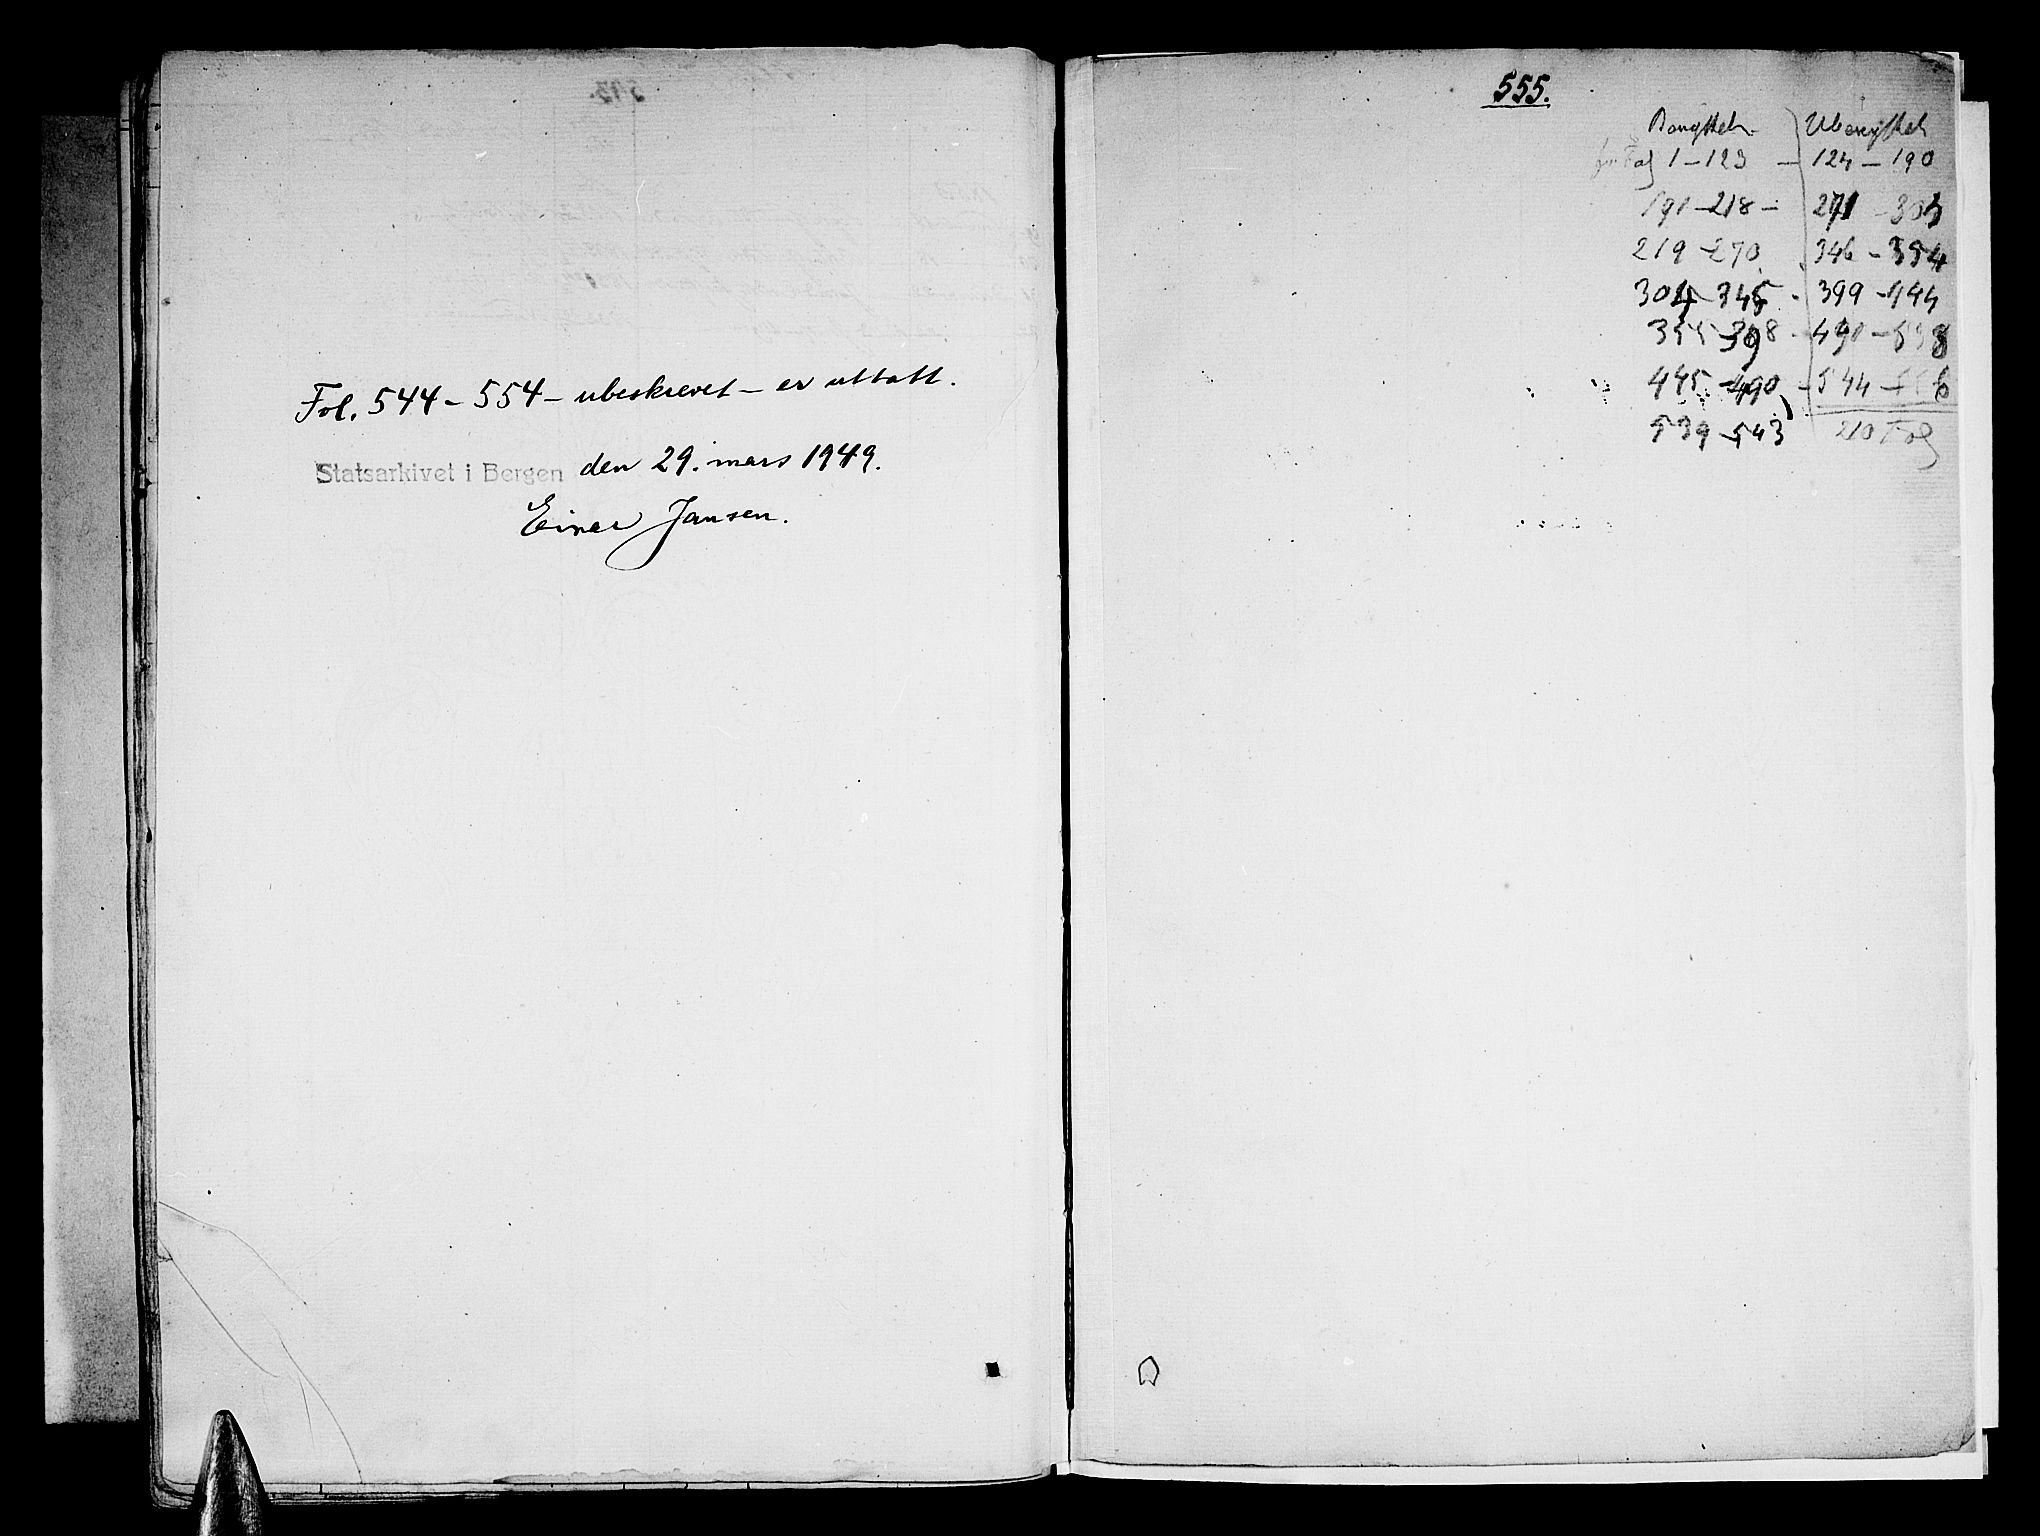 Fol. 544 - 554 - ubeskrevet - er uttatt.
Statsarkivet i Bergen den 29. mars 1949.
Einar Jansen.
555.
Benyttet Ubenyttet
Fol 1 - 123 - 124 - 190
191 - 218 - 271 - 303
219 - 270 346 - 354
304 - 345 - 399 - 444
355 - 398 - 491 - 538
445 - 490 - 544 - 556
539 - 543 210 Fol